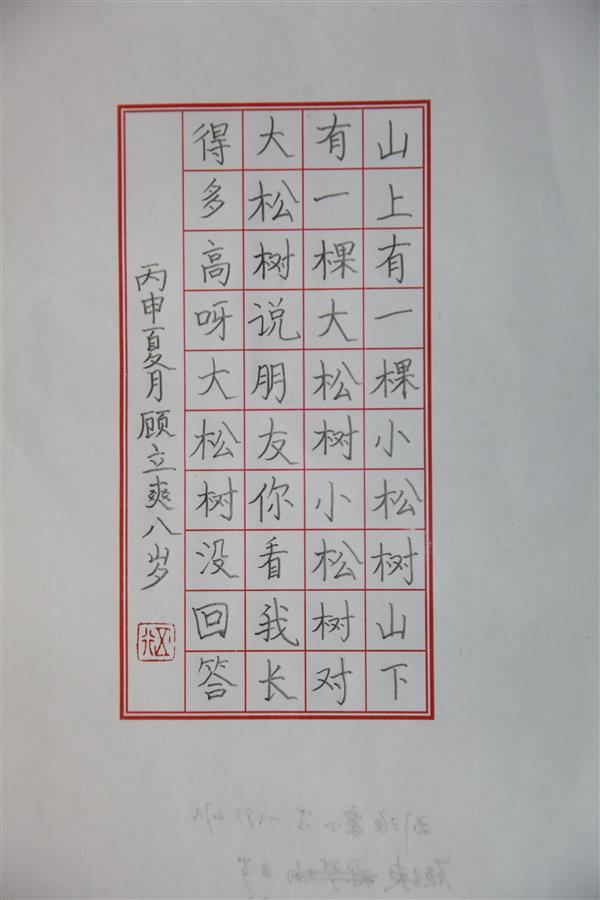 山上有一棵小松树山下
有一棵大松树小松树对
大松树说朋友你看我长
得多高呀大松树没回答
丙申夏月顾立爽八岁